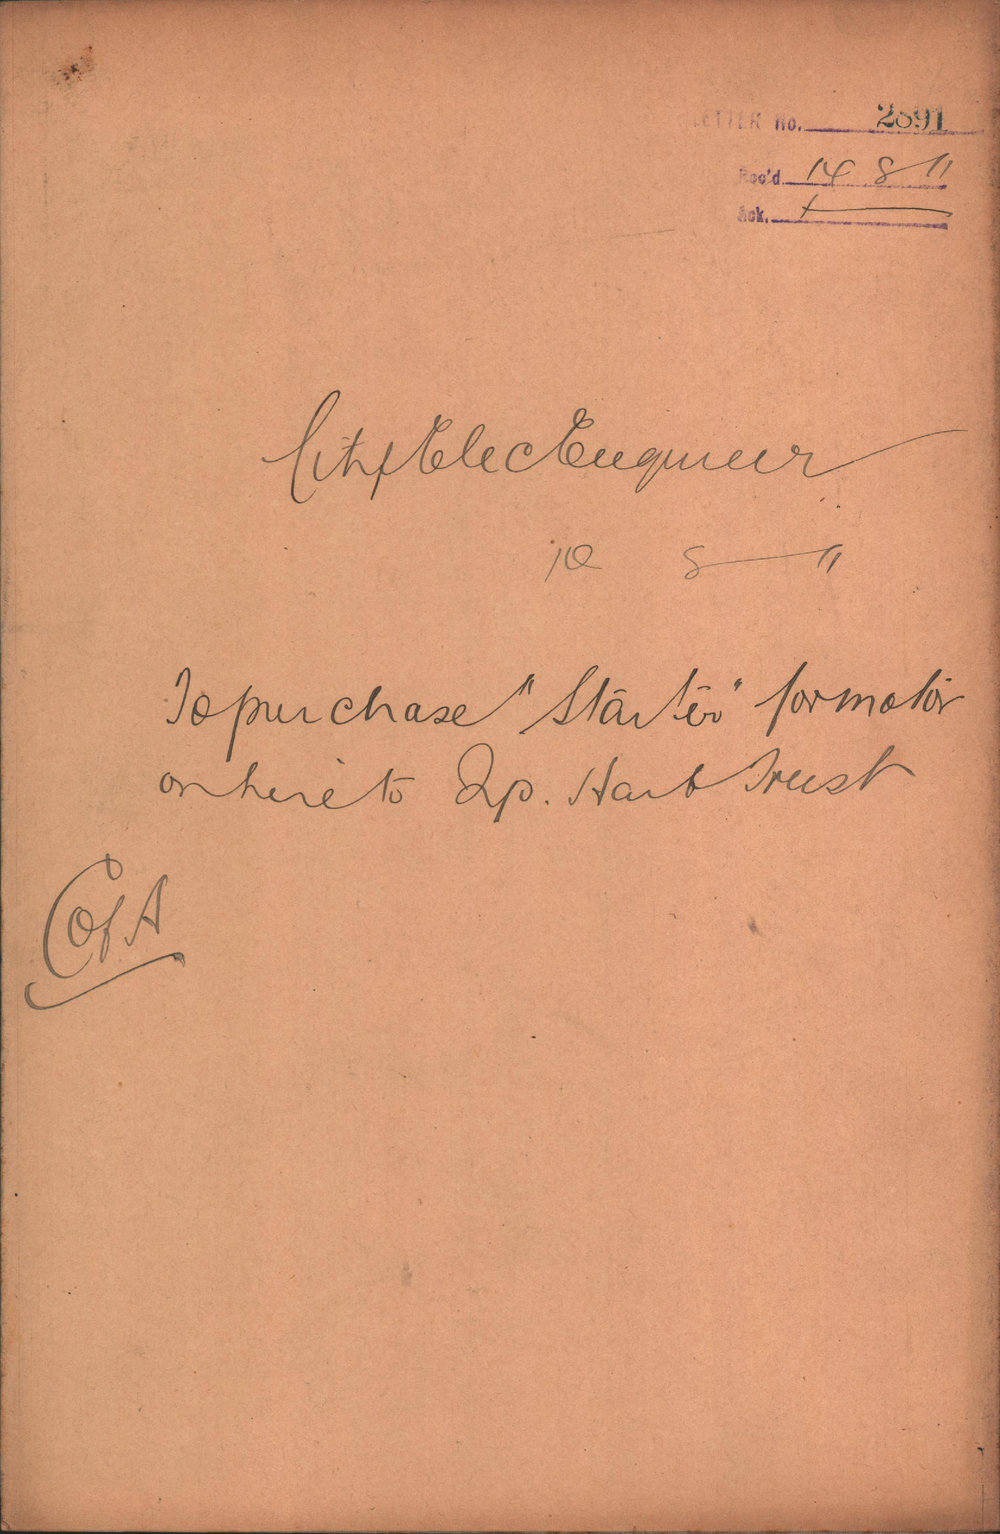 LETTER No. 2891
Rec'd. 14 8 11
Ack.
City Elec Engineer
10 8 11
To purchase "Starter" for motor
on hire to Lyp. Harb Trust
C of A